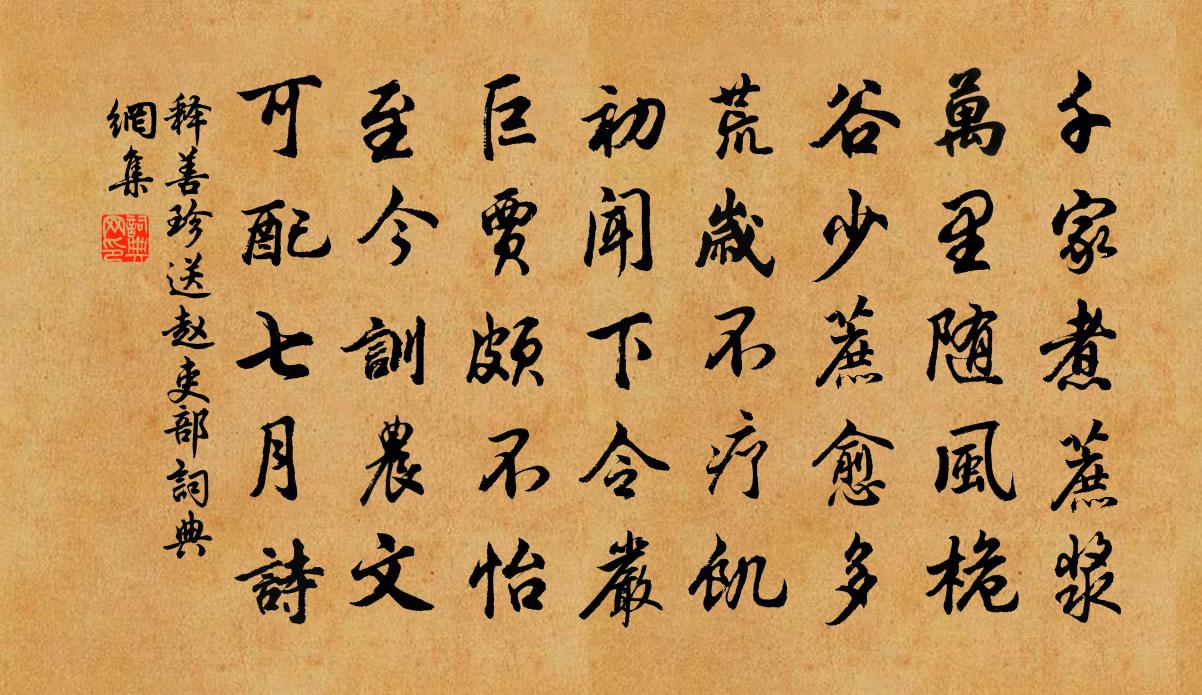 千家煮蔗漿
萬里随風桅
谷少蔗愈多
荒歲不疗飢
初闻下令嚴
巨賈頗不怡
至今訓農文
可配七月詩
释善珍送赵吏部詞典
網集
詞典
网印